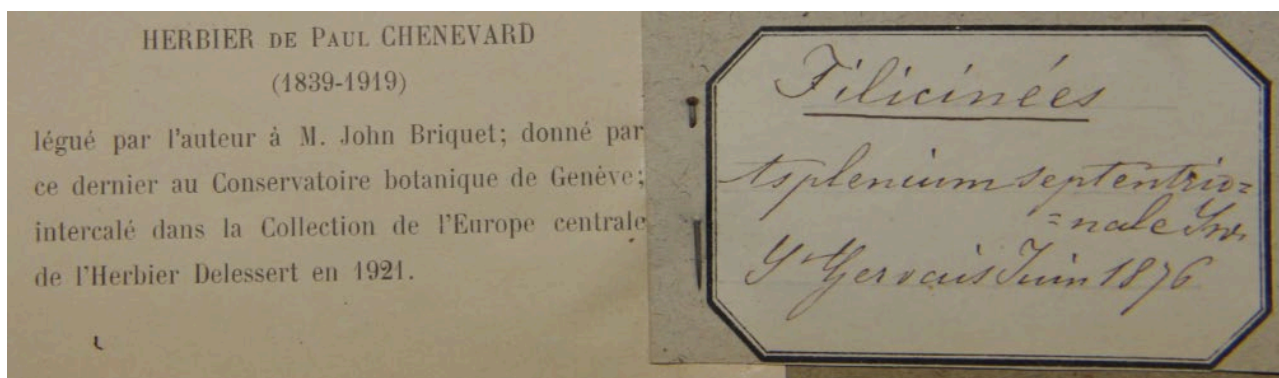 HERBIER DE PAUL CHENEVARD
(1839-1919)
légué par l'auteur à M. John Briquet; donné par
ce dernier au Conservatoire botanique de Genève;
intercalé dans la Collection de l'Europe centrale
de l'Herbier Delessert en 1921.
Filicinées
Asplenium septentrio=
=nale Sw.
St Gervais Juin 1876